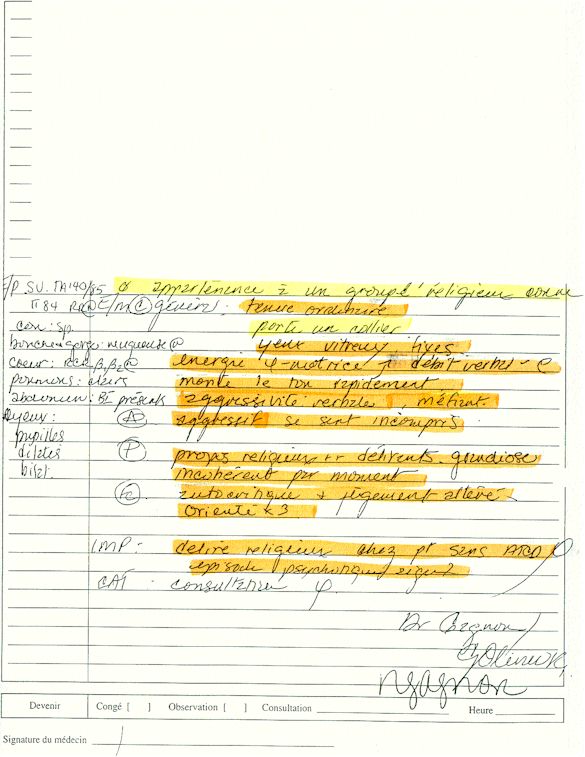 E/P SV. TA 140/85 ∅ appartenance à un groupe religieux connu
π 84 R. E/M C général: tenue ordinaire
cou: sp. porte un collier
bouche-gorge: muqueuse yeux vitreux, fixes
coeur: RCR B1B2 énergie ψ-motrice ↑ débit verbal
poumons: clairs monte le ton rapidement
abdomen: BI présents aggressivité verbale, méfiant.
yeux: A aggressif se sent incompris
pupilles
dilatés P propos religieux délirants grandiose
bilat. incohérent par moment
Fc autocritique + jugement altéré
Orienté x 3
IMP: délire religieux chez pt sans ATCD ψ
épisode psychotique aiguë
CAT consultation ψ.
Dr Gagnon
Devenir Congé [ ] Observation [ ] Consultation Heure
Signature du médecin